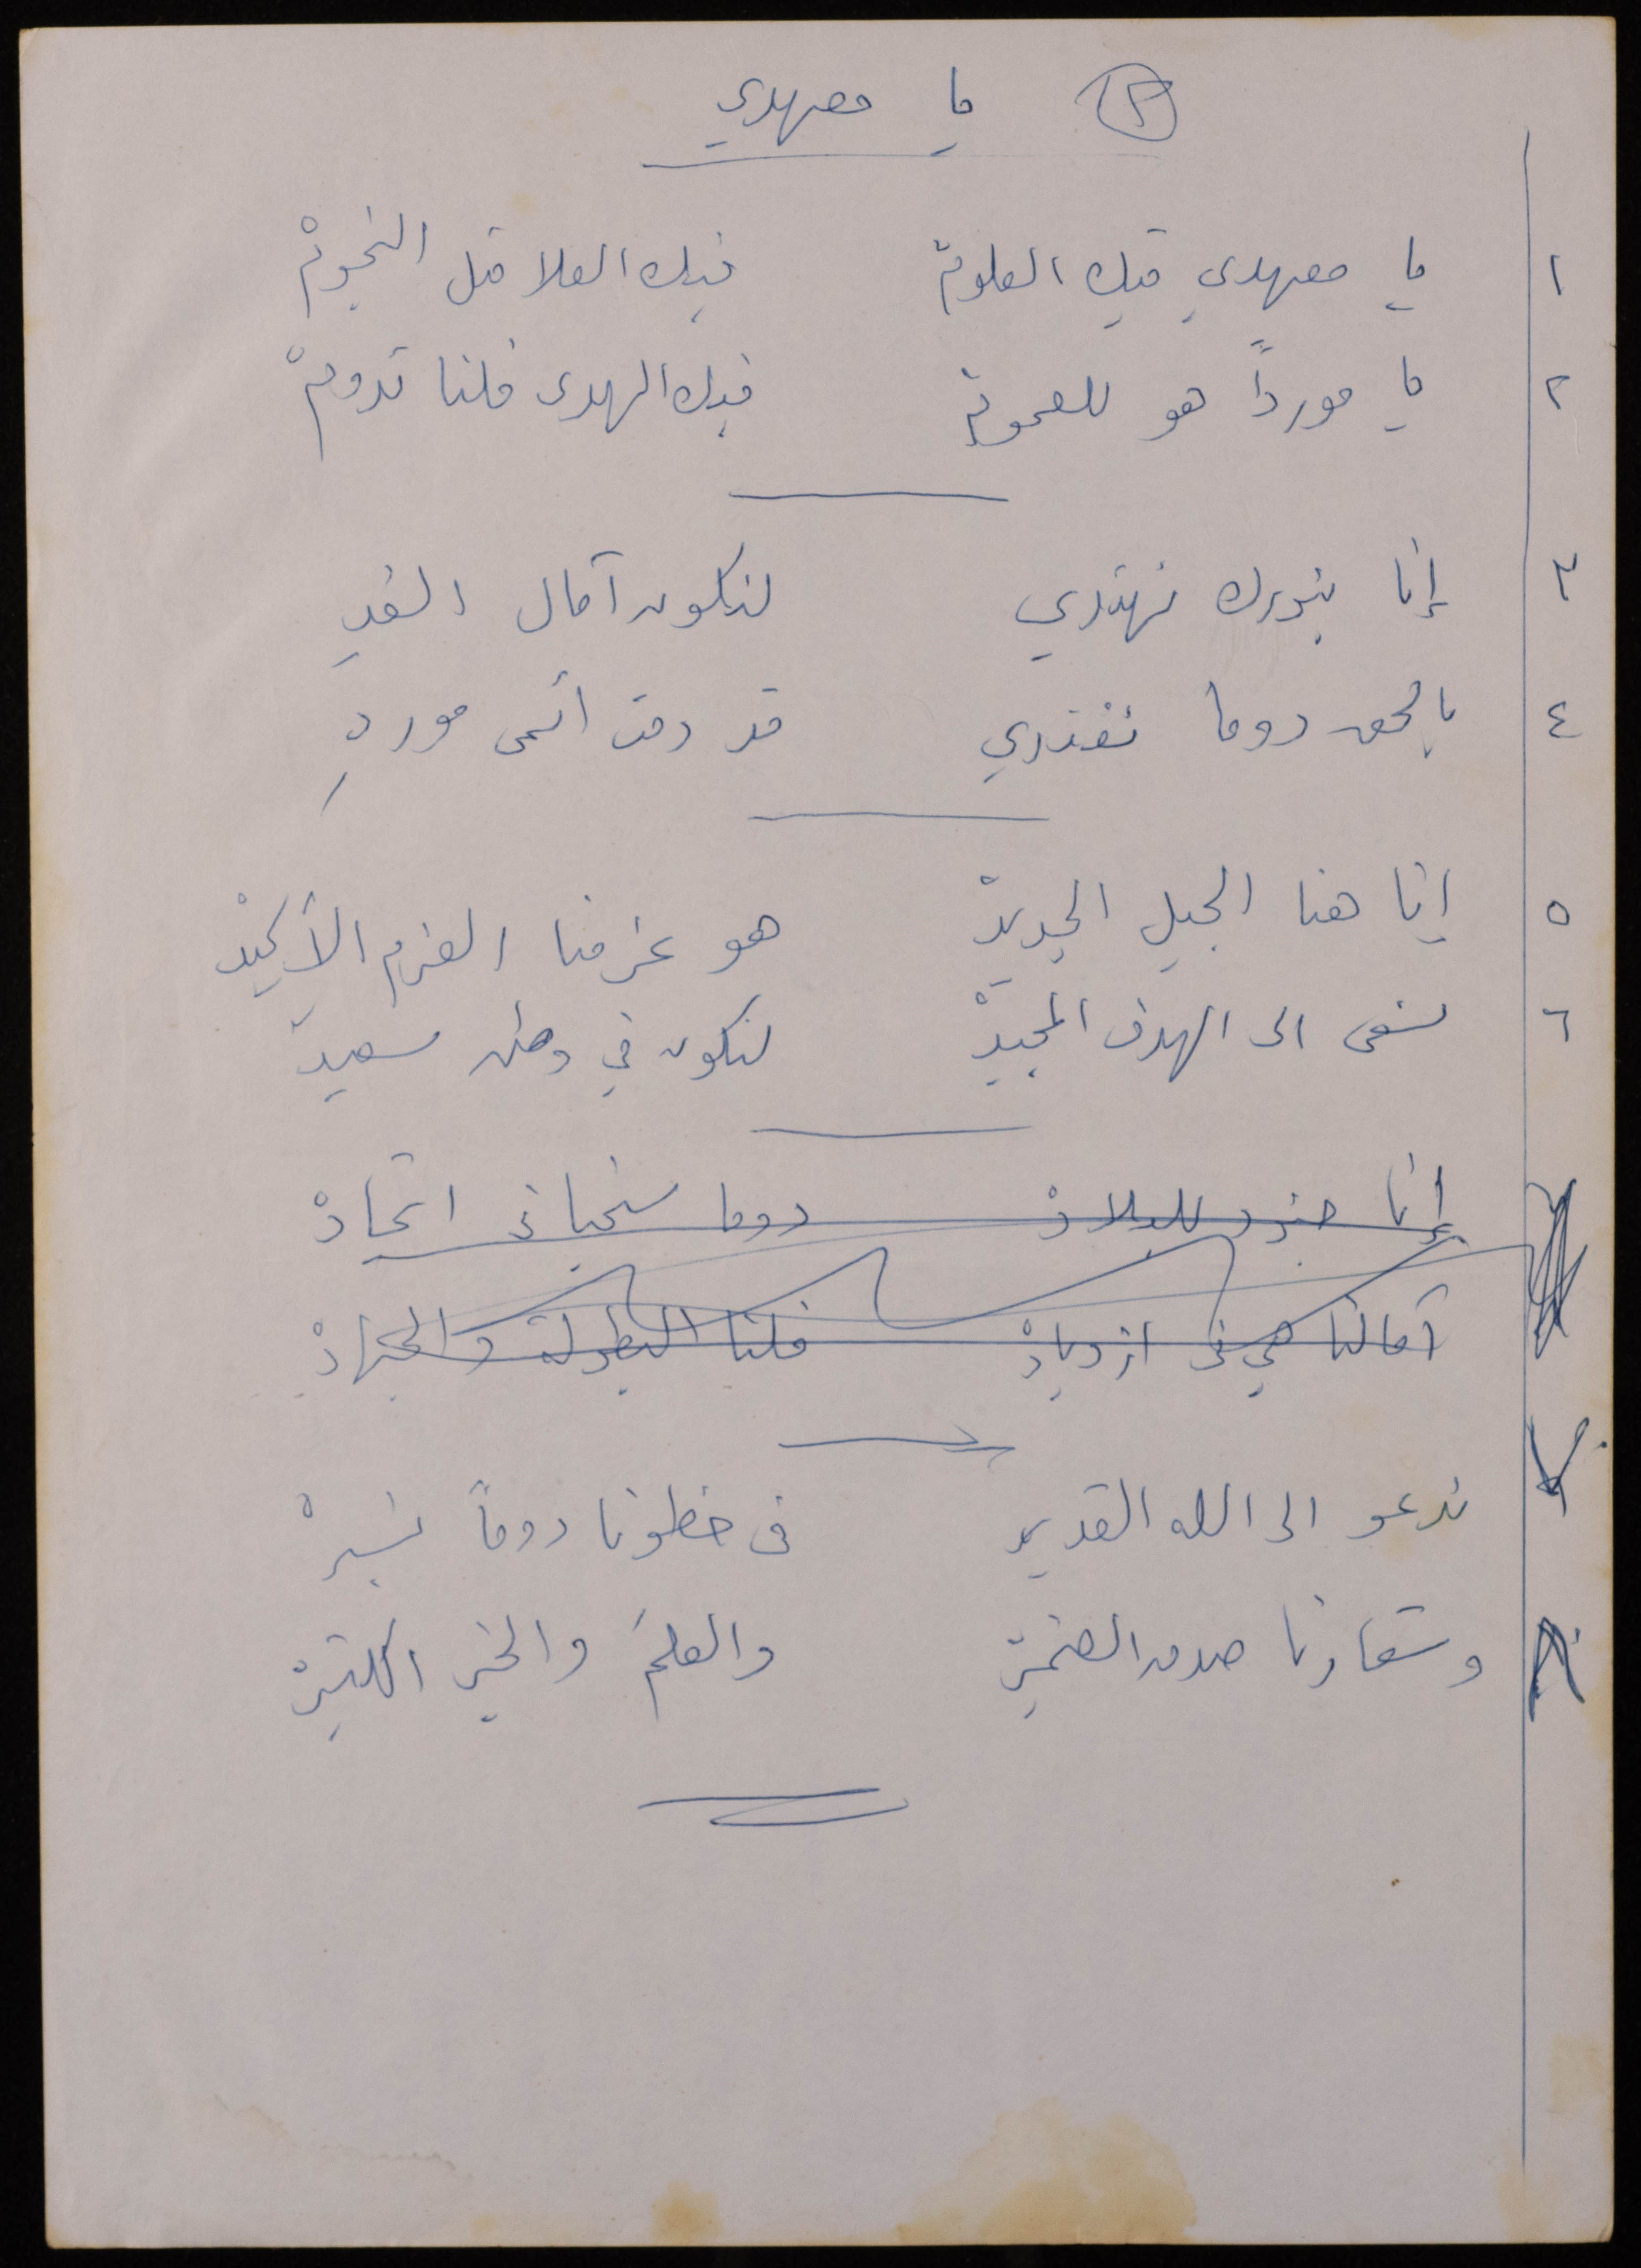 ٢ يا معهدي
١ يا معهدي فيك العلومْ فيك العلا مثل النجومْ
٢ يا مورداً هو للعمومْ فيك الهدى فلنا تدومْ
٣ إنا بنورك نهتدي لنكون آمال الغدِ
٤ بالحق دوما نقتدي قد دمت أسمى موردِ
٥ إنا هنا الجيل الجديدْ هو عزمنا العزم الأكيدْ
٦ نسعى الى الهدف المجيدْ لنكون في وطن سعيدْ
إنا جنود للبلادْ دوما سنحيا في اتحادْ
آمالنا هي في ازديادْ فلنا البطولة والجهادْ
٧ ندعو الى الله القدير في خطونا دوماً نسيرْ
٨ وشعارنا صدق الضميرْ والعلمُ والخير الكثيرْ